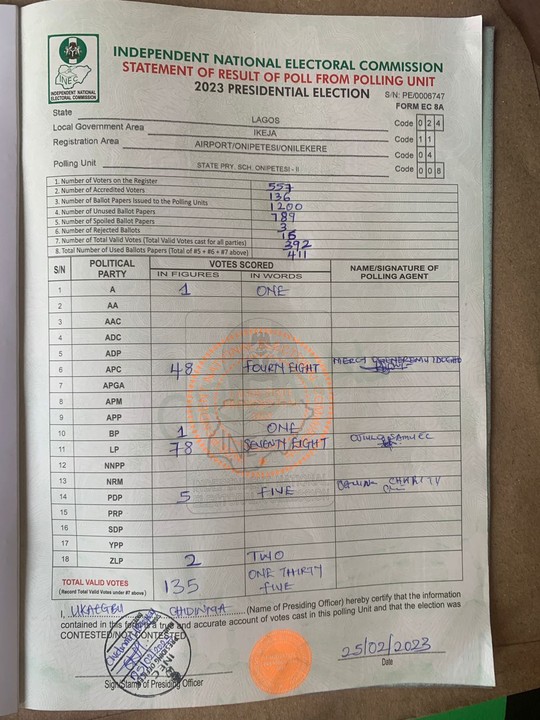 INEC
INDEPENDENT NATIONAL ELECTORAL COMMISSION
INDEPENDENT NATIONAL ELECTORAL COMMISSION
STATEMENT OF RESULT OF POLL FROM POLLING UNIT
2023 PRESIDENTIAL ELECTION
S/N: PE/0006747
FORM EC 8A
State LAGOS Code 0 2 4
Local Government Area IKEJA Code 1 1
Registration Area AIRPORT/ONIPETESI/ONILEKERE Code 0 4
Polling Unit STATE PRY. SCH. ONIPETESI - II Code 0 0 8
1. Number of Voters on the Register 557
2. Number of Accredited Voters 136
3. Number of Ballot Papers Issued to the Polling Units 1200
4. Number of Unused Ballot Papers 789
5. Number of Spoiled Ballot Papers 3
6. Number of Rejected Ballots 16
7. Number of Total Valid Votes (Total Valid Votes cast for all parties) 392
8. Total Number of Used Ballots Papers (Total of #5 + #6 + #7 above) 411
S/N POLITICAL PARTY VOTES SCORED NAME/SIGNATURE OF POLLING AGENT
IN FIGURES IN WORDS
1 A 1 ONE
2 AA
3 AAC
4 ADC
5 ADP
6 APC 48 FOURTY EIGHT MERCY
7 APGA
8 APM
9 APP
10 BP 1 ONE
11 LP 78 SEVENTY EIGHT SAMUEL
12 NNPP
13 NRM
14 PDP 5 FIVE CHARITY
15 PRP
16 SDP
17 YPP
18 ZLP 2 TWO
TOTAL VALID VOTES 135 ONE THIRTY FIVE
(Record Total Valid Votes under #7 above)
I, UKAEGBU CHIDINMA (Name of Presiding Officer) hereby certify that the information
contained in this form is a true and accurate account of votes cast in this polling Unit and that the election was
CONTESTED/NOT CONTESTED
25/02/2023
Date
Sign/Stamp of Presiding Officer